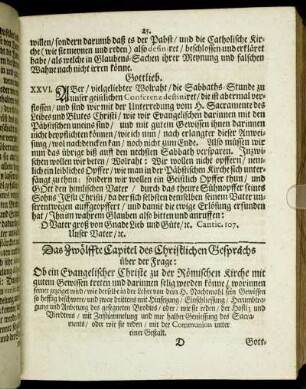 25.
willen / sondern darumb daß es der Pabst / und die Catholische Kir-
che / wie sie meynen und reden / also definiret / beschlossen und erkläret
habe / als welche in Glaubens-Sachen ihrer Meynung und falschen
Wahne nach nicht irren könne.
Gottlieb.
XXVI. Aber / vielgeliebter Wolraht / die Sabbaths-Stunde zu
unser geistlichen Conferentz destiniret / die ist abermal ver-
flossen / und sind wir mit der Unterredung vom H. Sacramente des
Leibes und Blutes Christi / wie wir Evangelischen darinnen mit den
Päbstischen uneins sind / und mit gutem Gewissen ihnen darinnen
nicht beypflichten können / wie ich nun / nach erlangter dieser Anwei-
sung / wol nachdencken kan / noch nicht zum Ende. Also müssen wir
nun das übrige biß auff den nechsten Sabbath versparen. Inzwi-
schen wollen wir beten / Wolraht: Wir wollen nicht opffern / nem-
lich ein leibliches Opffer / wie man in der Päbstischen Kirche sich unter-
fängt zu thun / sondern wir wollen ein Geistlich Opffer thun / und
GOtt den himlischen Vater / durch das theure Sühnopffer seines
Sohns JEsu Christi / da der sich selbsten demselben seinem Vater un-
sertwegen auffgeopffert / und damit die ewige Erlösung erfunden
hat / Ihn im wahrem Glauben also bitten und anruffen:
O Vater groß von Gnade Lieb und Güte / ꝛc. Cantic. 107.
Unser Vater / ꝛc.
Das Zwölffte Capitel des Christlichen Gesprächs
über der Frage:
Ob ein Evangelischer Christe zu der Römischen Kirche mit
gutem Gewissen treten und darinnen selig werden könne / worinnen
ferner gezeiget wird / wie derselbe in der Lehre von dem H. Nachtmahl sein Gewissen
so hefftig beschwere / und zwar drittens mit Hinsetzung / Einschliessung / Herumbtra-
gung und Anbetung des gesegneten Brodtes / oder / wie sie reden / der Hosti; und
Vierdtens / mit Zustimmelung und nur halber Geniessung des Sacra-
ments / oder wie sie reden / mit der Communion unter
einer Gestalt.
D Gott-